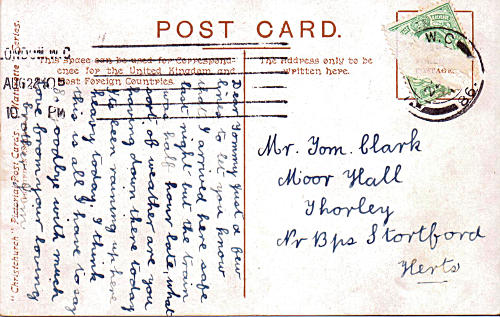 POST CARD.
This space can be used for Correspond-
ence for the United Kingdom and
Most Foreign Countries.
The Address only to be
written here.
LONDON. W.C
AUG 22 05
10. PM
W.C
"Christchurch" Post Cards.
Series.
Dear Tommy Just a few
lines to let you know
that I arrived here safe
last night but the train
was half hour late, what
sort of weather are you
having down there today
its been raining up here
heavy today. I think
this is all I have to say
so goodbye with much
love from your loving
Mr. Tom. Clark
Moor Hall
Thorley
Nr Bps Stortford
Herts